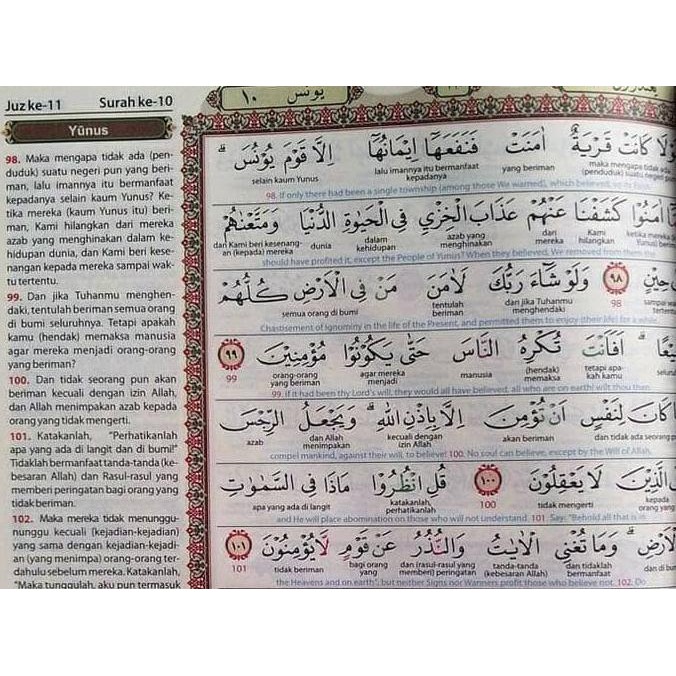 Juz ke-11 Surah ke-10
Yūnus
98. Maka mengapa tidak ada (pen-
duduk) suatu negeri pun yang beri-
man, lalu imannya itu bermanfaat
kepadanya selain kaum Yunus? Ke-
tika mereka (kaum Yunus itu) beri-
man, Kami hilangkan dari mereka
azab yang menghinakan dalam ke-
hidupan dunia, dan Kami beri kese-
nangan kepada mereka sampai wak-
tu tertentu.
99. Dan jika Tuhanmu menghen-
daki, tentulah beriman semua orang
di bumi seluruhnya. Tetapi apakah
kamu (hendak) memaksa manusia
agar mereka menjadi orang-orang
yang beriman?
100. Dan tidak seorang pun akan
beriman kecuali dengan izin Allah,
dan Allah menimpakan azab kepada
orang yang tidak mengerti.
101. Katakanlah, "Perhatikanlah
apa yang ada di langit dan di bumi!"
Tidaklah bermanfaat tanda-tanda (ke-
besaran Allah) dan Rasul-rasul yang
memberi peringatan bagi orang yang
tidak beriman.
102. Maka mereka tidak menunggu-
nunggu kecuali (kejadian-kejadian)
yang sama dengan kejadian-kejadi-
an (yang menimpa) orang-orang ter-
dahulu sebelum mereka. Katakanlah,
"Maka tunggulah, aku pun termasuk
يونس ١٠
كَانَتْ قَرْيَةٌ اٰمَنَتْ فَنَفَعَهَآ اِيْمَانُهَآ اِلَّا قَوْمَ يُوْنُسَۗ
maka mengapa tidak ada yang beriman lalu imannya itu bermanfaat selain kaum Yunus
(penduduk) suatu negeri kepadanya
98. If only there had been a single township (among those We warned), which believed,
اٰمَنُوْا كَشَفْنَا عَنْهُمْ عَذَابَ الْخِزْيِ فِى الْحَيٰوةِ الدُّنْيَا وَمَتَّعْنٰهُمْ
Kami dari azab yang dalam dunia dan Kami beri kesenang-
hilangkan mereka menghinakan kehidupan an (kepada) mereka
should have profited it, except the People of Yunus? When they believed, We removed from them the
حِيْنٍ ٩٨ وَلَوْ شَاۤءَ رَبُّكَ لَاٰمَنَ مَنْ فِى الْاَرْضِ كُلُّهُمْ
98 dan jika Tuhanmu tentulah semua orang di bumi
menghendaki beriman
Chastisement of Ignominy in the life of the Present, and permitted them to enjoy (their life) for a while.
اَفَاَنْتَ تُكْرِهُ النَّاسَ حَتّٰى يَكُوْنُوْا مُؤْمِنِيْنَ ٩٩
tetapi apa- (hendak) manusia agar mereka orang-orang 99
kah kamu memaksa menjadi yang beriman
99. If it had been thy Lord's will, they would all have believed, all who are on earth! wilt thou then
كَانَ لِنَفْسٍ اَنْ تُؤْمِنَ اِلَّا بِاِذْنِ اللّٰهِۗ وَيَجْعَلُ الرِّجْسَ
dan tidak ada seorang akan beriman kecuali dengan dan Allah azab
izin Allah menimpakan
compel mankind, against their will, to believe! 100. No soul can believe, except by the Will of Allah.
الَّذِيْنَ لَا يَعْقِلُوْنَ ١٠٠ قُلِ انْظُرُوْا مَاذَا فِى السَّمٰوٰتِ
kepada tidak mengerti 100 katakanlah, apa yang ada di langit
orang yang perhatikanlah
and He will place abomination on those who will not understand. 101. Say: "Behold all that is in
وَمَا تُغْنِى الْاٰيٰتُ وَالنُّذُرُ عَنْ قَوْمٍ لَّا يُؤْمِنُوْنَ ١٠١
dan di dan tidaklah tanda-tanda dan (rasul-rasul yang bagi orang tidak beriman 101
bermanfaat (kebesaran Allah) memberi) peringatan yang
the Heavens and on earth"; but neither Signs nor Warners profit those who believe not. 102. Do